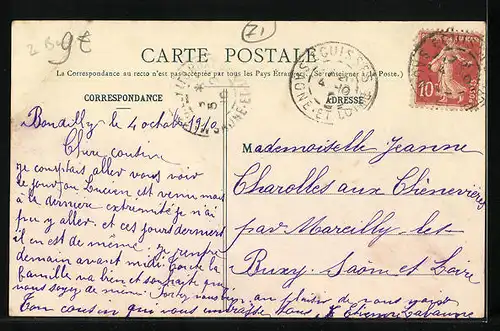 2 B
9€
Z1
CARTE POSTALE
(La Correspondance au recto n'est pas acceptée par tous les Pays Étrangers. (Se renseigner à la Poste.)
CORRESPONDANCE
ADRESSE
10
Bondilly le 4 octobre 1910
Chère cousine
je comptais aller vous voir
le jour ou Lucien est venu mais
à la dernière extrémité je n'ai
pu y aller. et ces jours derniers
il en est de même. je rentre
demain avant midi. Toute la
famille va bien et souhaite que
vous soyez de même. Portez vous bien au plaisir de vous voir
Ton cousin qui vous embrasse tous
Mademoiselle Jeanne
Charolles aux Chenevières
par Marcilly les
Buxy Saône et Loire
SAÔNE-ET-LOIRE